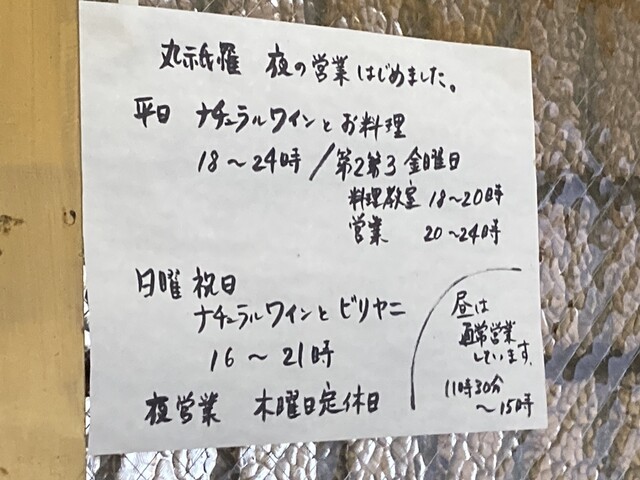 丸祇羅 夜の営業はじめました。
平日 ナチュラルワインとお料理
18〜24時/第2第3金曜日
料理教室 18〜20時
営業 20〜24時
日曜 祝日
ナチュラルワインとビリヤニ
16〜21時
夜営業 木曜日定休日
昼は
通常営業
しています。
11時30分
〜15時